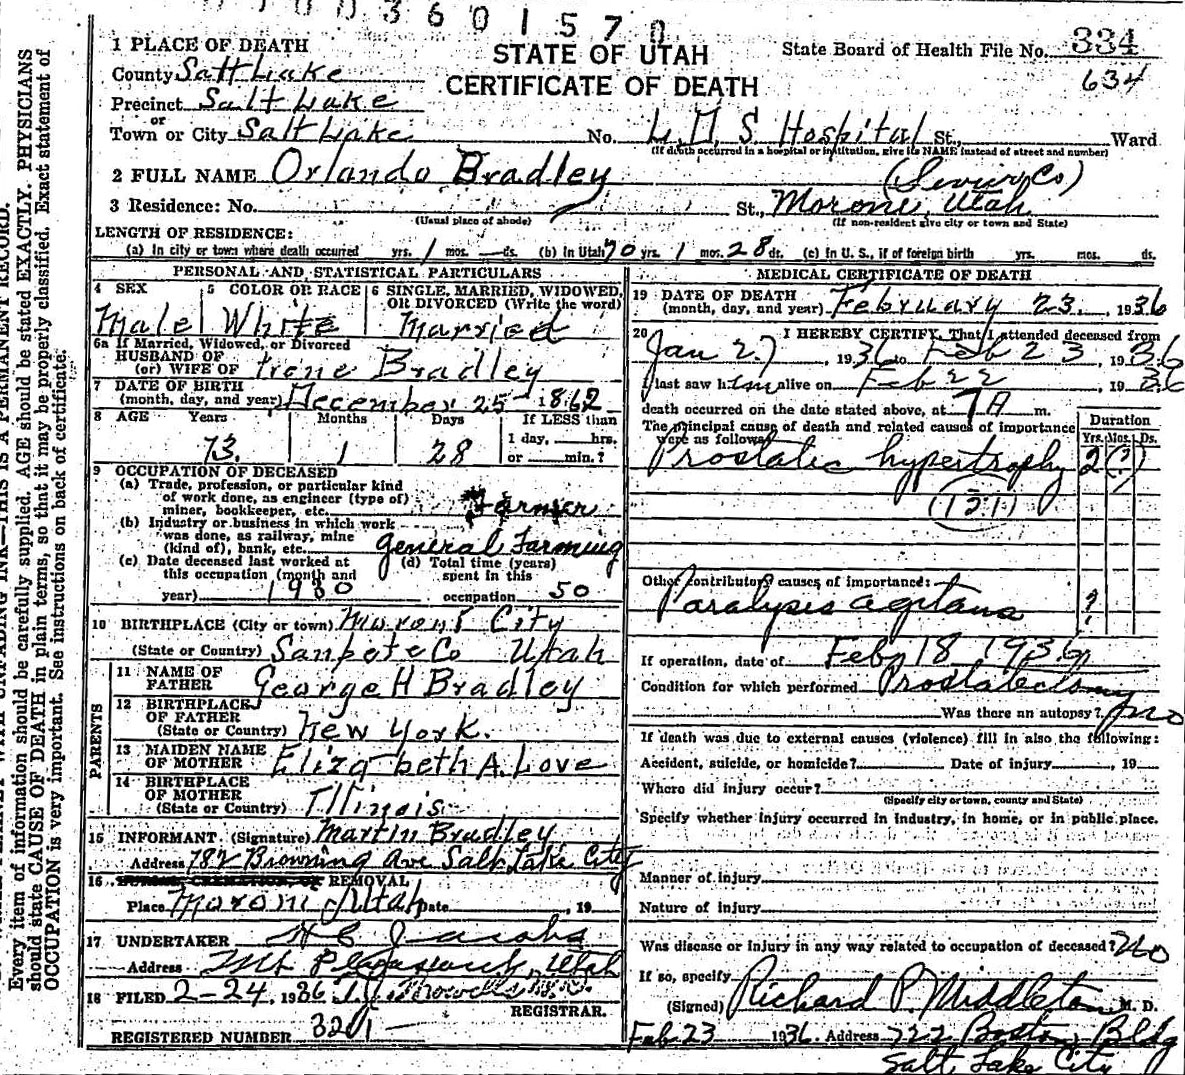 3 6 0 1 5 7 0
1 PLACE OF DEATH
STATE OF UTAH
CERTIFICATE OF DEATH
State Board of Health File No. 334
634
County Salt Lake
Precinct Salt Lake
or
Town or City Salt Lake No. L.D.S Hospital St., Ward
(If death occurred in a hospital or institution, give its NAME instead of street and number)
2 FULL NAME Orlando Bradley
3 Residence: No. St., Moroni, Utah
(Usual place of abode) (If non-resident give city or town and State)
LENGTH OF RESIDENCE:
(a) In city or town where death occurred yrs. 1 mos. — ds. (b) In Utah 70 yrs. 1 mos. 28 ds. (c) In U. S., if of foreign birth yrs. mos. ds.
PERSONAL AND STATISTICAL PARTICULARS
4 SEX 5 COLOR OR RACE 6 SINGLE, MARRIED, WIDOWED, OR DIVORCED (Write the word)
Male White Married
6a If Married, Widowed, or Divorced
HUSBAND OF
(or) WIFE OF Irene Bradley
7 DATE OF BIRTH
(month, day, and year) December 25 - 1862
8 AGE Years Months Days If LESS than
73. 1 28 1 day, hrs.
or min.?
9 OCCUPATION OF DECEASED
(a) Trade, profession, or particular kind
of work done, as engineer (type of)
miner, bookkeeper, etc. Farmer
(b) Industry or business in which work
was done, as railway, mine
(kind of), bank, etc. general Farming
(c) Date deceased last worked at
this occupation (month and
year) 1930
(d) Total time (years)
spent in this
occupation 50
10 BIRTHPLACE (City or town) Moroni City
(State or Country) Sanpete Co Utah
PARENTS
11 NAME OF
FATHER George H Bradley
12 BIRTHPLACE
OF FATHER
(State or Country) New York.
13 MAIDEN NAME
OF MOTHER Elizabeth A. Love
14 BIRTHPLACE
OF MOTHER
(State or Country) Illinois
15 INFORMANT (Signature) Martin Bradley
Address 782 Browning Ave Salt Lake City
16 BURIAL, CREMATION, OR REMOVAL
Place Moroni Utah Date , 19
17 UNDERTAKER
Address Mt Pleasant, Utah
18 FILED 2-24, 1936
REGISTRAR.
REGISTERED NUMBER
MEDICAL CERTIFICATE OF DEATH
19 DATE OF DEATH
(month, day, and year) February 23, 1936
20 I HEREBY CERTIFY, That I attended deceased from
Jan 27, 1936 to Feb 23, 1936
I last saw him alive on Feb 22 1936
death occurred on the date stated above, at 7 A m.
The principal cause of death and related causes of importance
were as follows:
Duration
Yrs. Mos. Ds.
Prostatic hypertrophy 2 (?)
Other contributory causes of importance:
Paralysis agitans ?
If operation, date of Feb 18 1936
Condition for which performed Prostatectomy
Was there an autopsy? no
If death was due to external causes (violence) fill in also the following:
Accident, suicide, or homicide? Date of injury , 19
Where did injury occur?
(Specify city or town, county and State)
Specify whether injury occurred in industry, in home, or in public place.
Manner of injury
Nature of injury
Was disease or injury in any way related to occupation of deceased? No
If so, specify
(Signed) Richard P. Middleton M. D.
Feb 23 1936 Address 722 Boston Bldg
Salt Lake City
Every item of information should be carefully supplied. AGE should be stated EXACTLY. PHYSICIANS
should state CAUSE OF DEATH in plain terms, so that it may be properly classified. Exact statement of
OCCUPATION is very important. See instructions on back of certificate.